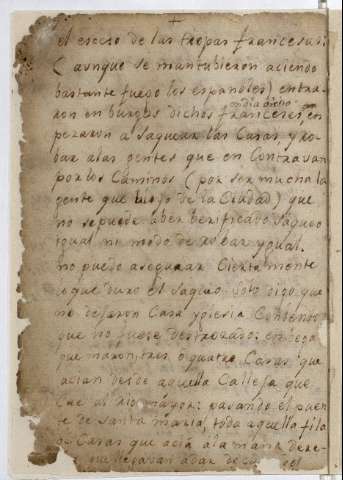 el exceso de las tropas francesas:
( aunque se mantubieron aciendo
bastante fuego los españoles) entra-
ron en burgos dichos franceses, en
pezaron a saquear las Casas, y ro-
bar a las gentes que en Contravan
por los Caminos ( por ser mucha la
gente que de la Ciudad) que
no se puede aber berificado saqueo
igual ni modo de ygual.
no puedo asegurar Ciertamente
o que duro el saqueo, solo digo que
no dejaron Casa yglesia Combento
que no fuese destrozado:
que maron, tres o quatro Casas que
acian desde aquella Calleja que
Cae al rio mayor: pasando el puen
te de santa maria, toda aquella fila
de Casas que acia a la mano dere-